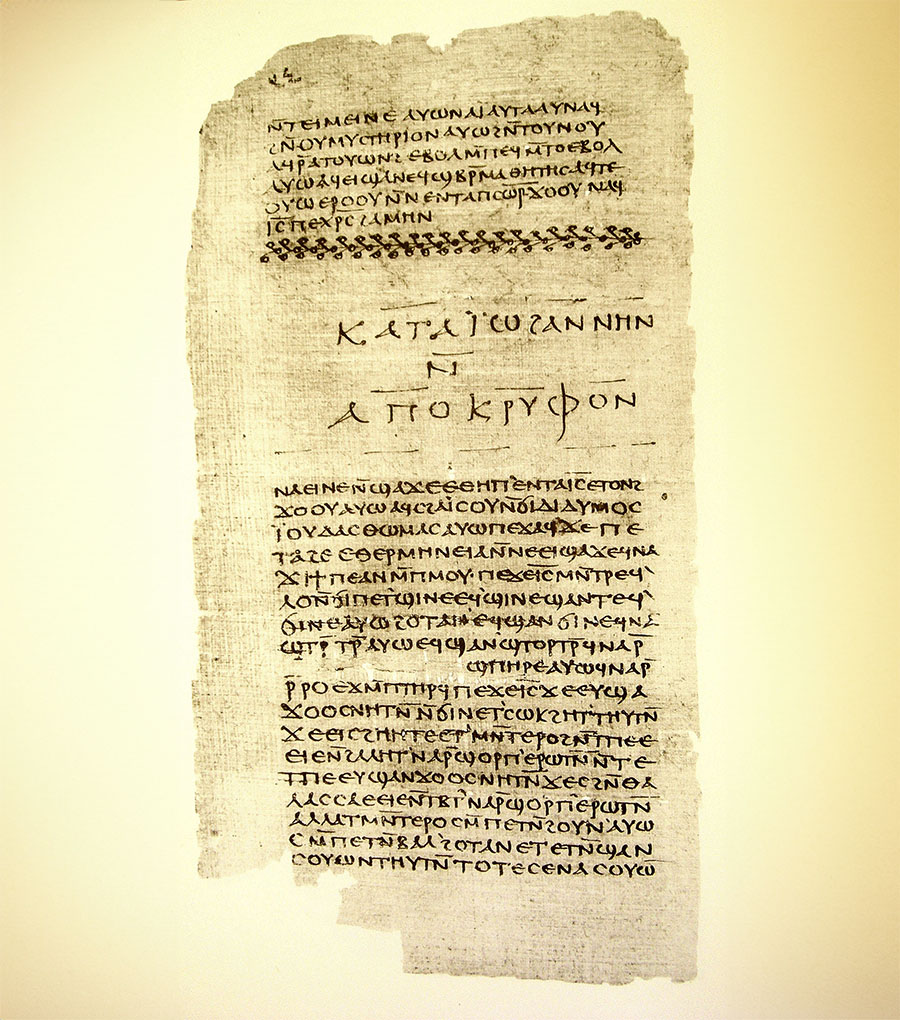 ⲛ̄ⲧⲉⲓⲙⲉⲓⲛⲉ ⲁⲩⲱ ⲛⲁⲓ̈ ⲁⲩⲧⲁⲁⲩ ⲛⲁϥ
ϩⲛ̄ⲟⲩⲙⲩⲥⲧⲏⲣⲓⲟⲛ ⲁⲩⲱ ϩⲛ̄ⲧⲟⲩⲛⲟⲩ
ⲁϥⲣ̄ⲁⲧⲟⲩⲱⲛϩ ⲉⲃⲟⲗ ⲙ̄ⲡⲉϥⲙ̄ⲧⲟ ⲉⲃⲟⲗ
ⲁⲩⲱ ⲁϥⲉⲓ ϣⲁⲛⲉϥϣⲃⲣ̄ⲙⲁⲑⲏⲧⲏⲥ ⲁϥⲧⲉ
ⲟⲩⲱ ⲉⲣⲟⲟⲩ ⲛ̄ⲛⲉⲛⲧⲁⲡⲥⲱ̄ⲣ ϫⲟⲟⲩ ⲛⲁϥ
ⲓ̄ⲥ̄ ⲡⲉⲭ̄ⲣ̄ⲥ̄ ϩⲁⲙⲏⲛ
ⲕⲁⲧⲁ ⲓ̈ⲱϩⲁⲛⲛⲏⲛ
ⲛ̄
ⲁⲡⲟⲕⲣⲩⲫⲟⲛ
ⲛⲁⲉⲓ ⲛⲉ ⲛ̄ϣⲁϫⲉ ⲉⲑⲏⲡ ⲉⲛⲧⲁⲓ̄ⲥ̄ ⲉⲧⲟⲛϩ
ϫⲟⲟⲩ ⲁⲩⲱ ⲁϥⲥϩⲁⲓ̈ⲥⲟⲩ ⲛ̄ϭⲓ ⲇⲓⲇⲩⲙⲟⲥ
ⲓ̈ⲟⲩⲇⲁⲥ ⲑⲱⲙⲁⲥ ⲁⲩⲱ ⲡⲉϫⲁϥ ϫⲉ ⲡⲉ
ⲧⲁϩⲉ ⲉⲑⲉⲣⲙⲏⲛⲉⲓⲁ ⲛ̄ⲛⲉⲉⲓϣⲁϫⲉ ϥⲛⲁ
ϫⲓ ϯⲡⲉ ⲁⲛ ⲙ̄ⲡⲙⲟⲩ ⲡⲉϫⲉ ⲓ̄ⲥ̄ ⲙⲛ̄ⲧⲣⲉϥ
ⲗⲟ ⲛ̄ϭⲓ ⲡⲉⲧϣⲓⲛⲉ ⲉϥϣⲓⲛⲉ ϣⲁⲛⲧⲉϥ
ϭⲓⲛⲉ ⲁⲩⲱ ϩⲟⲧⲁⲛ ⲉϥϣⲁⲛϭⲓⲛⲉ ϥⲛⲁ
ϣⲧⲣ̄ⲧⲣ̄ ⲁⲩⲱ ⲉϥϣⲁⲛϣⲧⲟⲣⲧⲣ̄ ϥⲛⲁⲣ̄
ϣⲡⲏⲣⲉ ⲁⲩⲱ ϥⲛⲁⲣ̄
ⲣ̄ⲣⲟ ⲉϫⲙ̄ ⲡⲧⲏⲣϥ ⲡⲉϫⲉ ⲓ̄ⲥ̄ ϫⲉ ⲉⲩϣⲁ
ϫⲟⲟⲥ ⲛⲏⲧⲛ̄ ⲛ̄ϭⲓ ⲛⲉⲧⲥⲱⲕ ϩⲏⲧ ⲧⲏⲩⲧⲛ̄
ϫⲉ ⲉⲓⲥϩⲏⲏⲧⲉ ⲉⲧⲙⲛ̄ⲧⲉⲣⲟ ϩⲛ̄ ⲧⲡⲉ ⲉ
ⲉⲓⲉ ⲛ̄ϩⲁⲗⲏⲧ ⲛⲁⲣ̄ ϣⲟⲣⲡ ⲉⲣⲱⲧⲛ̄ ⲛ̄ⲧⲉ
ⲧⲡⲉ ⲉⲩϣⲁⲛϫⲟⲟⲥ ⲛⲏⲧⲛ̄ ϫⲉ ⲥϩⲛ̄ ⲑⲁ
ⲗⲁⲥⲥⲁ ⲉⲉⲓⲉ ⲛ̄ⲧⲃⲧ ⲛⲁⲣ̄ ϣⲟⲣⲡ ⲉⲣⲱⲧⲛ̄
ⲁⲗⲗⲁ ⲧⲙⲛ̄ⲧⲉⲣⲟ ⲥⲙ̄ⲡⲉⲧⲛ̄ϩⲟⲩⲛ ⲁⲩⲱ
ⲥⲙ̄ⲡⲉⲧⲛ̄ⲃⲁⲗ ϩⲟⲧⲁⲛ ⲉⲧⲉⲧⲛ̄ϣⲁⲛ
ⲥⲟⲩⲱⲛ ⲧⲏⲩⲧⲛ̄ ⲧⲟⲧⲉ ⲥⲉⲛⲁⲥⲟⲩⲱ